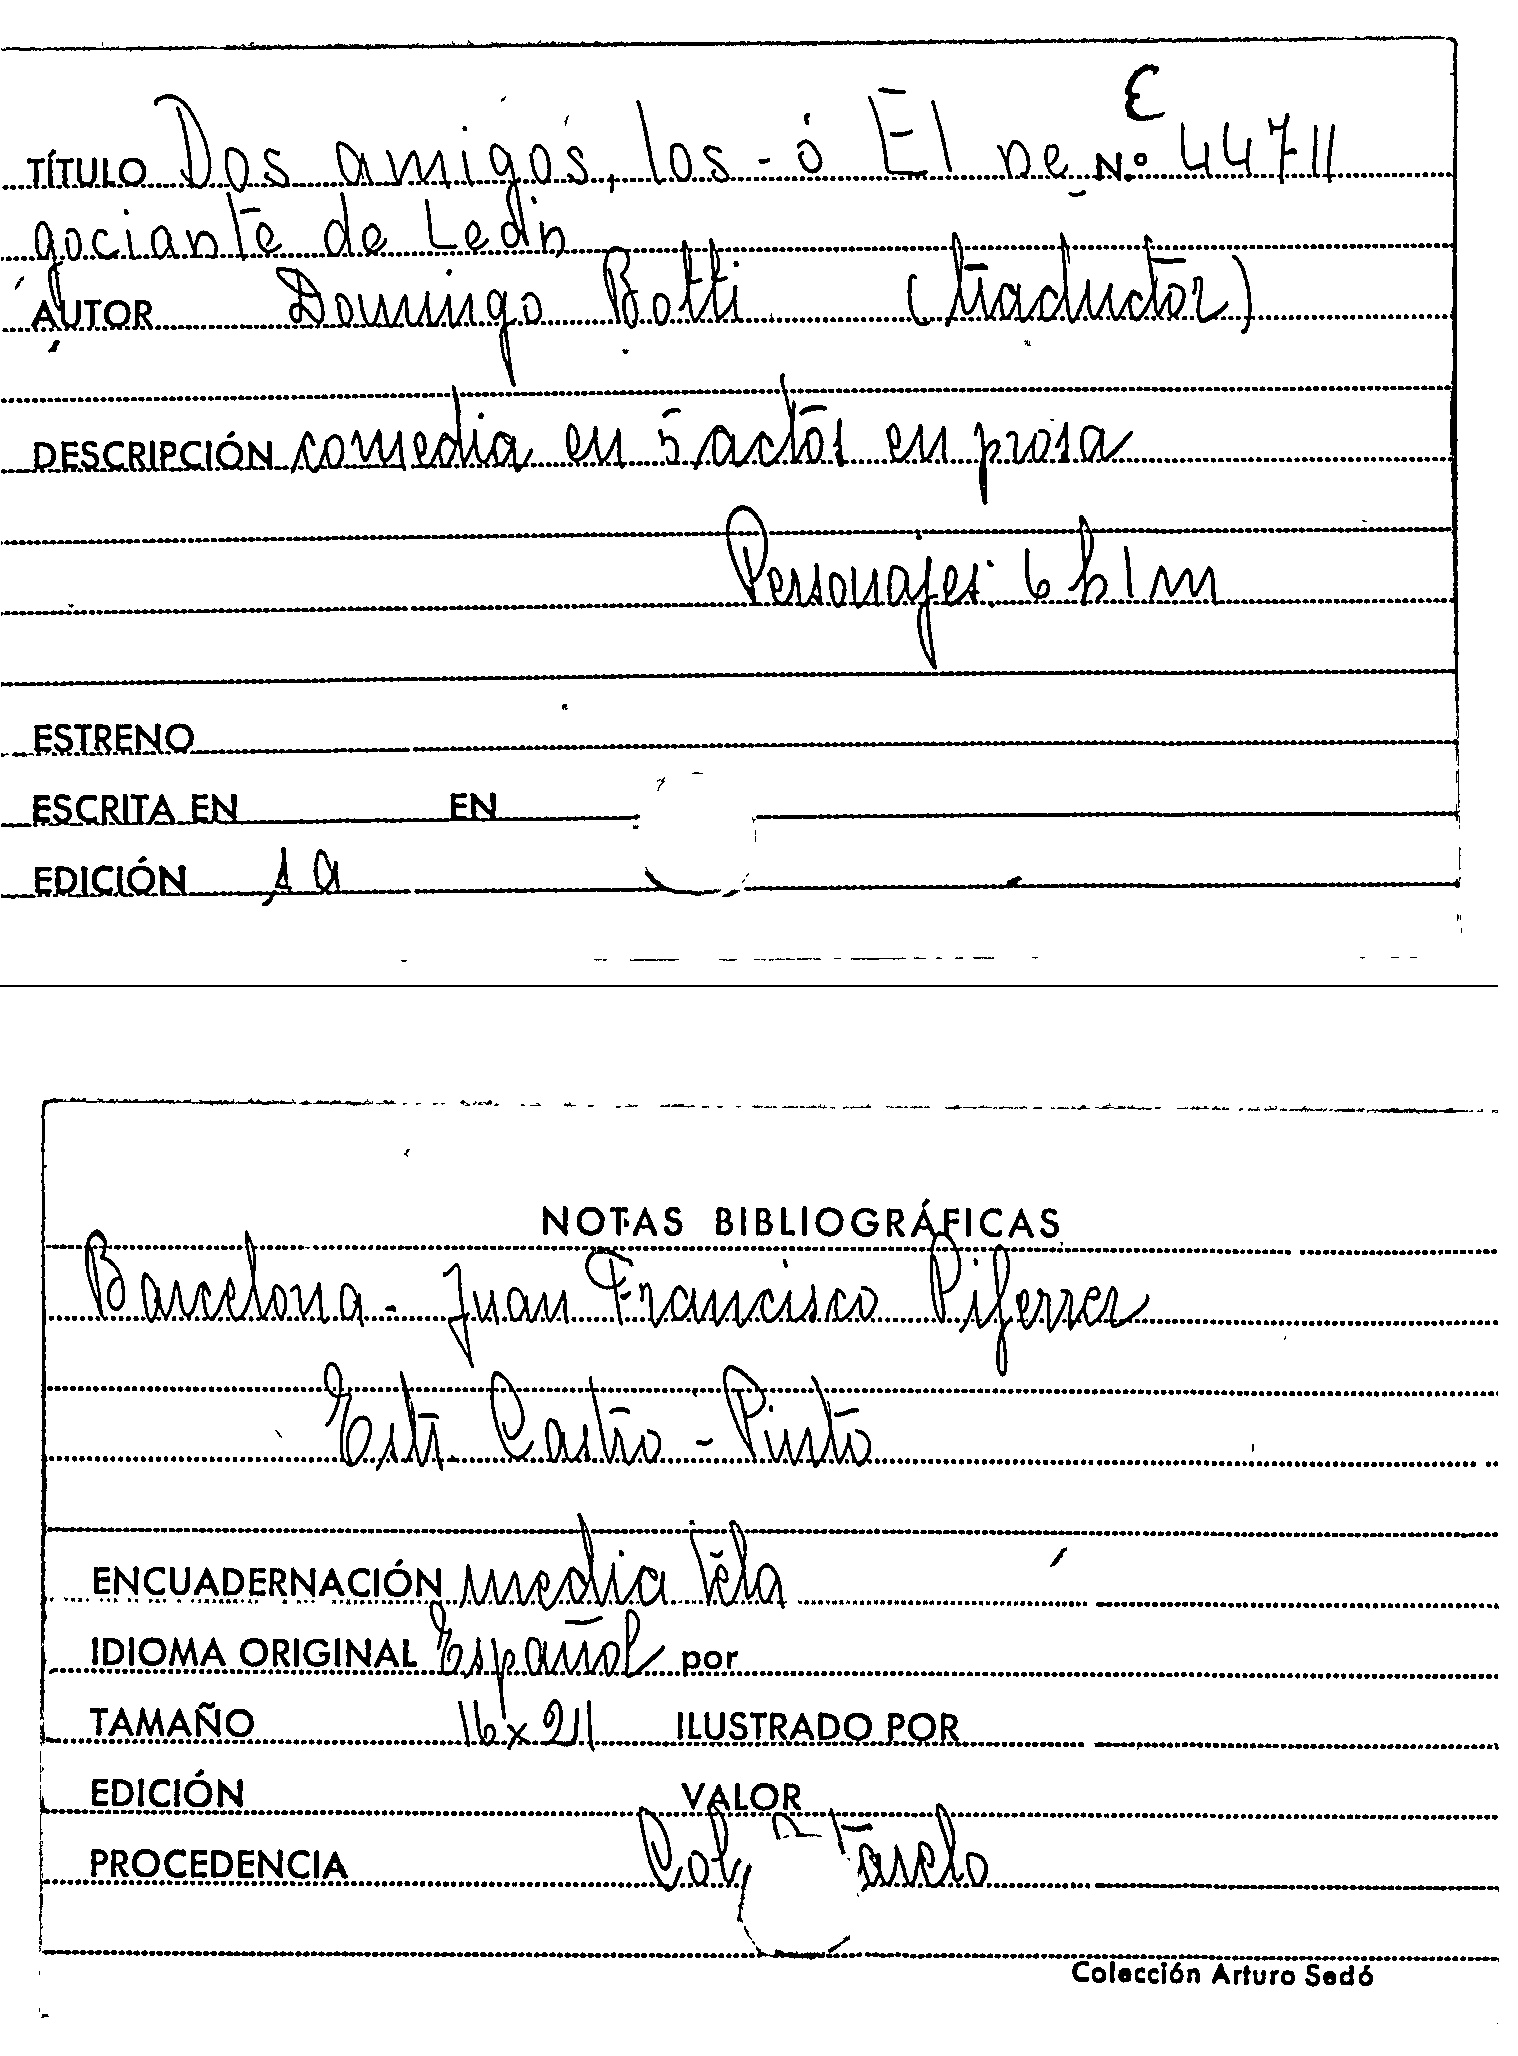 Є
TÍTULO Dos amigos, los - ó El ne N.º 44711
gociante de León
AUTOR Domingo Botti (traductor)
DESCRIPCIÓN comedia en 5 actos en prosa
Personajes: 6 h 1 m
ESTRENO
ESCRITA EN EN
EDICIÓN 1a
NOTAS BIBLIOGRÁFICAS
Barcelona - Juan Francisco Piferrer
Estr. Castro - Pinto
ENCUADERNACIÓN media tela
IDIOMA ORIGINAL Español por
TAMAÑO 16 x 21 ILUSTRADO POR
EDICIÓN VALOR
PROCEDENCIA Col,
Colección Arturo Sedó